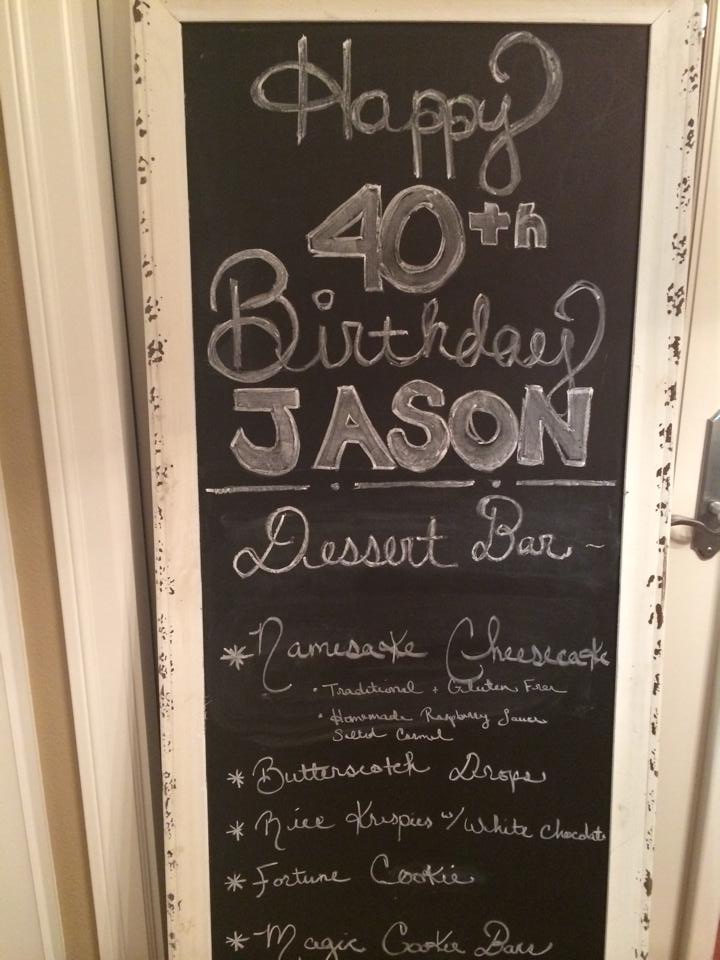 Happy
40th
Birthday
JASON
Dessert Bar ~
* Namesake Cheesecake
• Traditional + Gluten Free
• Homemade Raspberry Sauce
Salted Carmel
* Butterscotch Drops
* Rice Krispies w/ White Chocolate
* Fortune Cookie
* Magic Cookie Bars